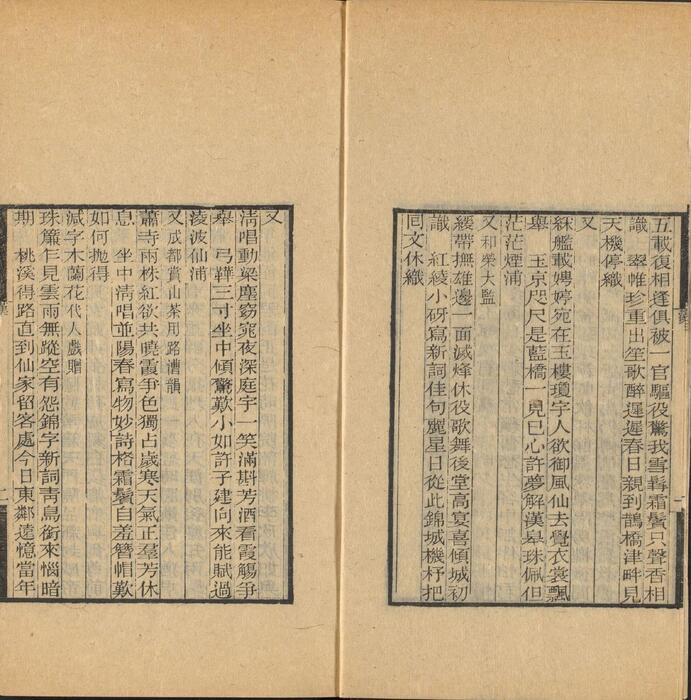 五載復相逢俱被一官驅役驚我雪髯霜鬢只聲香相
識　翠帷珍重出笙歌醉遲遲春日親到鵲橋津畔見
天機停織
又
綵艦載娉婷宛在玉樓瓊宇人欲御風仙去覺衣裳飄
舉　玉京咫尺是藍橋一見已心許夢解漢皋珠佩但
茫茫煙浦
又和榮大監
緩帶撫雄邊一面滅烽休役歌舞後堂高宴喜傾城初
識　紅綾小砑寫新詞佳句麗星日從此錦城機杼把
囘文休織
又
淸唱動梁塵窈窕夜深庭宇一笑滿斟芳酒看霞觴爭
舉　弓鞾三寸坐中傾驚歎小如許子建向來能賦過
凌波仙浦
又成都賞山茶用路漕韻
蕭寺兩株紅欲共曉霞爭色獨占歲寒天氣正羣芳休
息　坐中淸唱並陽春寫物妙詩格霜鬢自羞簪帽歎
如何拋得
減字木蘭花代人戲贈
珠簾乍見雲雨無蹤空有怨錦字新詞靑鳥銜來惱暗
期　桃溪得路直到仙家留客處今日東鄰遠憶當年
二